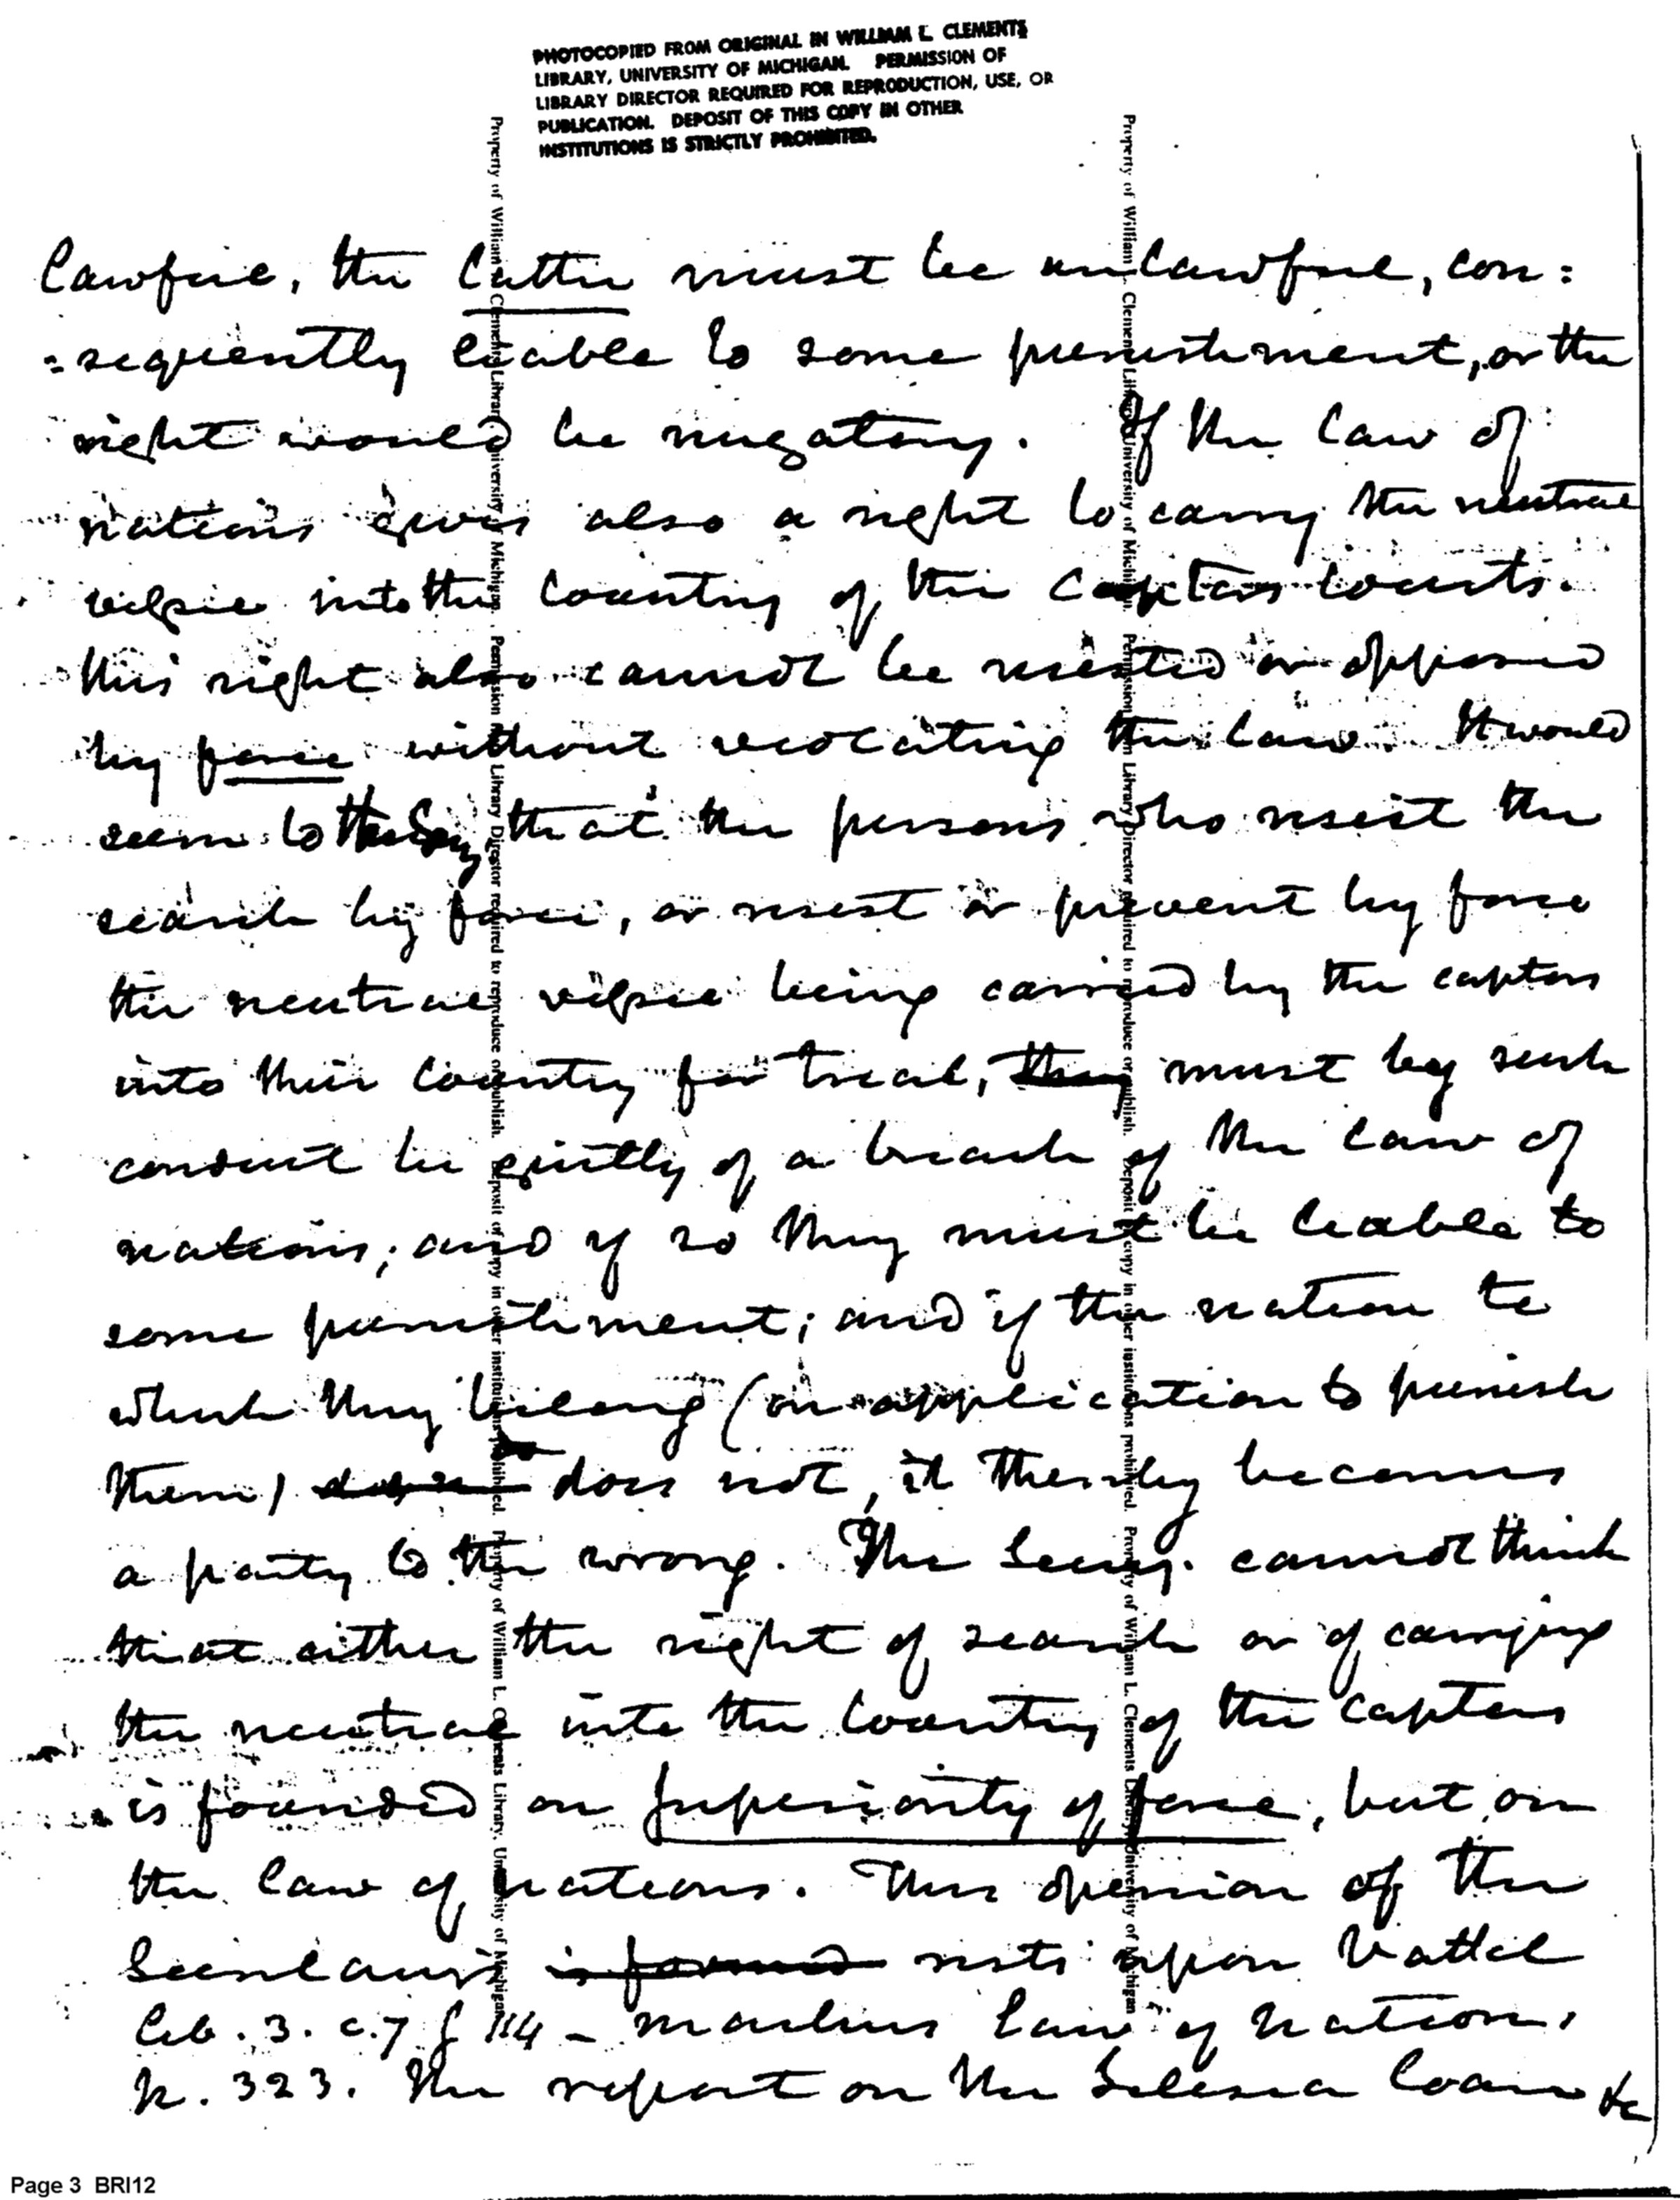 PHOTOCOPIED FROM ORIGINAL IN WILLIAM L. CLEMENTS
LIBRARY, UNIVERSITY OF MICHIGAN. PERMISSION OF
LIBRARY DIRECTOR REQUIRED FOR REPRODUCTION, USE, OR
PUBLICATION. DEPOSIT OF THIS COPY IN OTHER
INSTITUTIONS IS STRICTLY PROHIBITED.
lawful, the latter must be unlawful, con=
=sequently liable to some punishment, or the
right would be nugatory. If the law of
nations gives also a right to carry the neutral
vessel into the Country of the Captors Courts.
this right also cannot be resisted or opposed
by force without violating the law. It would
seem to the Secy that the persons who resist the
search by force, or resist or prevent by force
the neutral vessel being carried by the captors
into their Country for trial, they must by such
conduct be guilty of a breach of the law of
nations; and if so they must be liable to
some punishment; and if the nation to
which they belong (on application to punish
them) does not, it thereby becomes
a party to the wrong. The Secry. cannot think
that either the right of search or of carrying
the neutral into the Country of the Captors
is founded on Superiority of force, but on
the law of nations. This opinion of the
Secretary's is formed rests upon Vattel
Lib. 3. c. 7 § 114 - Martens Law of Nations,
p. 323. The report on the Silesia Loan &c
Property of William L. Clements Library, University of Michigan. Permission of Library Director required to reproduce or publish. Deposit of copy in other institutions prohibited. Property of William L. Clements Library, University of Michigan
Property of William L. Clements Library, University of Michigan. Permission of Library Director required to reproduce or publish. Deposit of copy in other institutions prohibited. Property of William L. Clements Library, University of Michigan
Page 3 BRI12